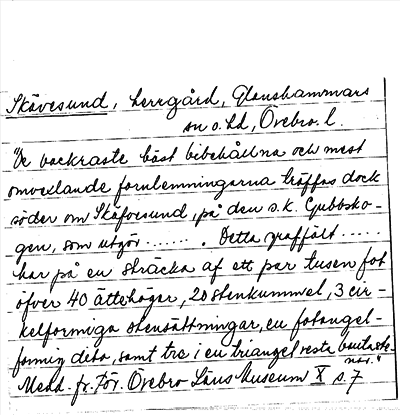 Skävesund, herrgård, Glanshammars
sn o. hd, Örebro l.
"De vackraste bäst bibehållna och mest
omvexlande fornlemningarna träffas dock
söder om Skäfvesund, på den s.k. Gubbsko-
gen, som utgör ....... . Detta graffält .....
har på en sträcka af ett par tusen fot
öfver 40 ättehögar, 20 stenkummel, 3 cir-
kelformiga stensättningar, en fotangel-
formig dito, samt tre i en triangel resta bautaste-
nar."
Medd. fr. För. Örebro Läns Museum X s. 7